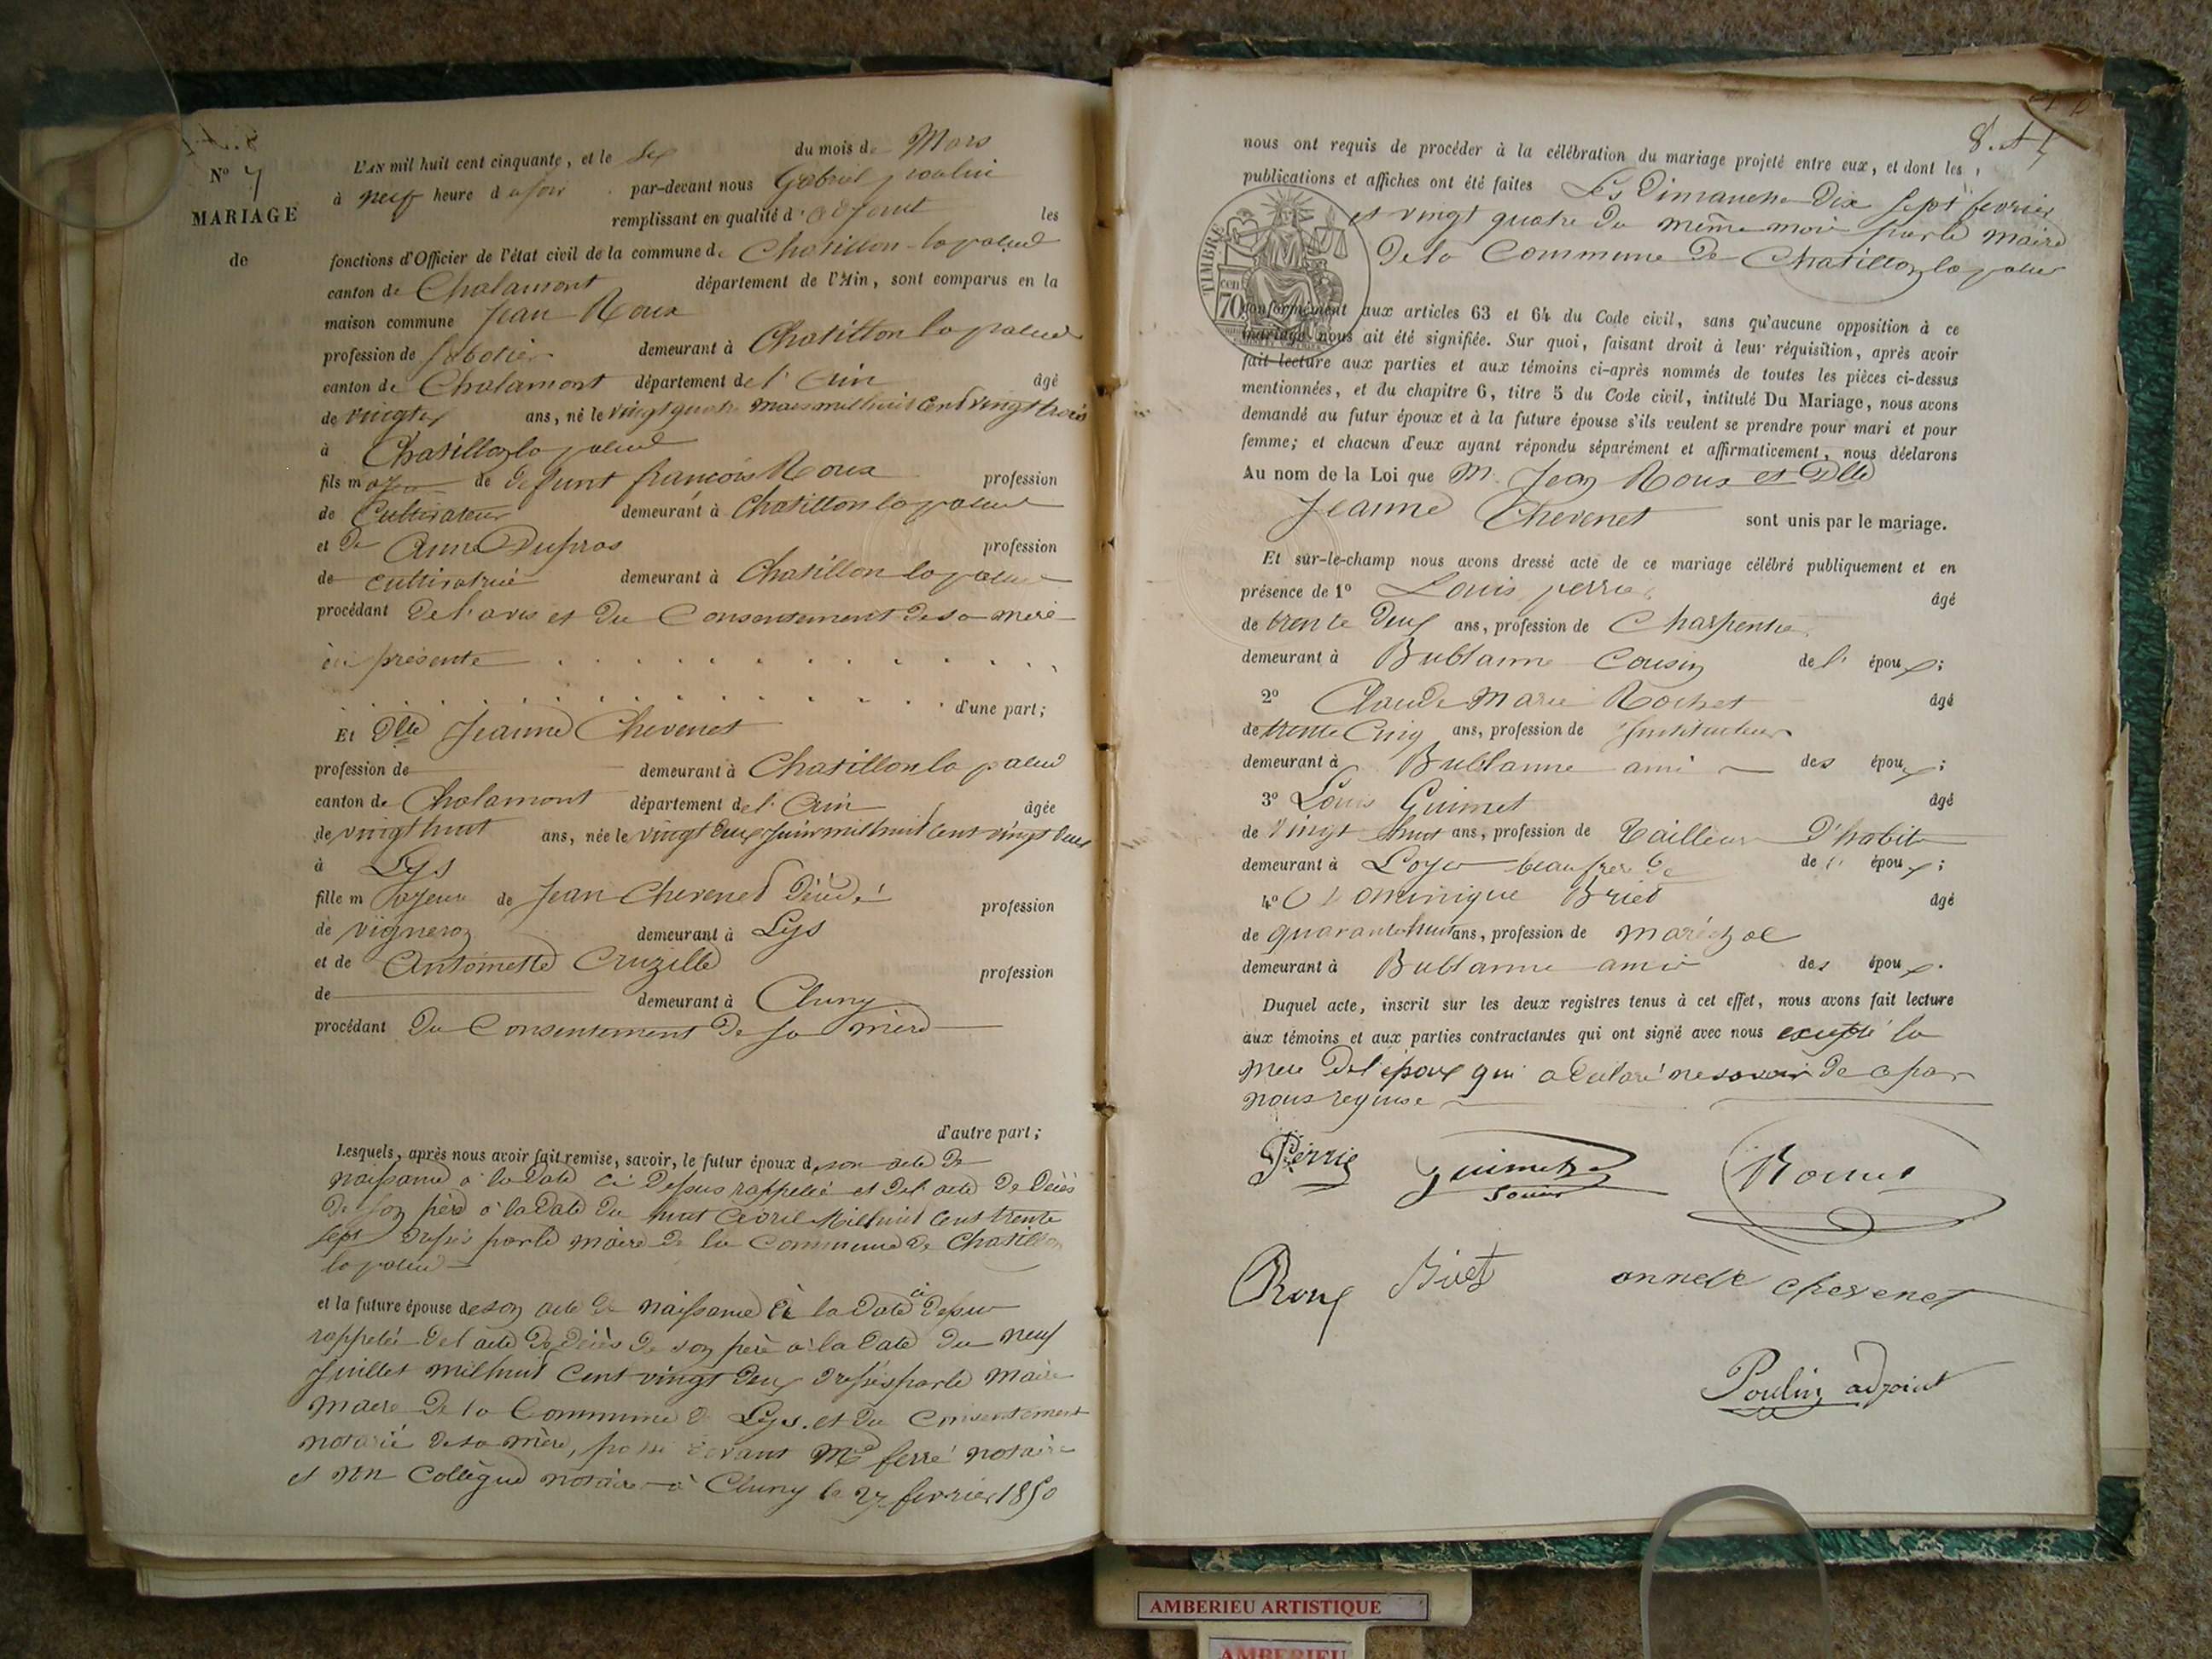 N° 7
MARIAGE
de
L'AN mil huit cent cinquante, et le Six du mois de Mars
à neuf heure du soir par-devant nous Gabriel poulin
remplissant en qualité d'adjoint les
fonctions d'Officier de l'état civil de la commune de Chatillon la palud
canton de Chalamont département de l'Ain, sont comparus en la
maison commune Jean Roux
profession de sabotier demeurant à Chatillon la palud
canton de Chalamont département de l'Ain âgé
de vingt six ans, né le vingt quatre mars mil huit cent vingt trois
à Chatillon la palud
fils majeur de defunt françois Roux profession
de Cultivateur demeurant à Chatillon la palud
et de Anne Dupras profession
de cultivatrice demeurant à Chatillon la palud
procédant de l'avis et du Consentement de sa mère
ici présente
d'une part;
Et Dlle Jeanne Chevenet
profession de demeurant à Chatillon la palud
canton de Chalamont département de l'Ain âgée
de vingt huit ans, née le vingt deux Juin mil huit cent vingt deux
à Lys
fille majeure de Jean Chevenet décédé profession
de vigneron demeurant à Lys
et de Antoinette Cruzille profession
de demeurant à Cluny
procédant du Consentement de sa mère
d'autre part;
Lesquels, après nous avoir fait remise, savoir, le futur époux de son acte de
naissance à la date ci dessus rappelée et de l'acte de décès
de son père à la date du huit avril mil huit cent trente
sept dressé par le maire de la Commune de Chatillon
la palud
et la future épouse de son acte de naissance à la date ci dessus
rappelée de l'acte de décès de son père à la date du neuf
Juillet mil huit cent vingt deux dressés par le maire
maire de la Commune de Lys. et du Consentement
notarié de sa mère, passé devant Me ferré notaire
et son Collègue notaire à Cluny le 27 fevrier 1850
nous ont requis de procéder à la célébration du mariage projeté entre eux, et dont les
publications et affiches ont été faites Les Dimanche dix sept fevrier
et vingt quatre du même mois par le maire
de la Commune de Chatillon la palud
TIMBRE
70
conformément aux articles 63 et 64 du Code civil, sans qu'aucune opposition à ce
mariage nous ait été signifiée. Sur quoi, faisant droit à leur réquisition, après avoir
fait lecture aux parties et aux témoins ci-après nommés de toutes les pièces ci-dessus
mentionnées, et du chapitre 6, titre 5 du Code civil, intitulé Du Mariage, nous avons
demandé au futur époux et à la future épouse s'ils veulent se prendre pour mari et pour
femme; et chacun d'eux ayant répondu séparément et affirmativement, nous déclarons
Au nom de la Loi que M. Jean Roux et Dlle
Jeanne Chevenet sont unis par le mariage.
Et sur-le-champ nous avons dressé acte de ce mariage célébré publiquement et en
présence de 1° Louis perrier âgé
de trente deux ans, profession de Charpentier
demeurant à Bublanne Cousin de l' époux;
2° Claude Marie Rochet âgé
de trente Cinq ans, profession de Instituteur
demeurant à Bublanne ami des époux;
3° Louis Guimet âgé
de Vingt huit ans, profession de Tailleur D'habit
demeurant à Loyes beau frère de de l' époux;
4° Dominique Briet âgé
de quarante huit ans, profession de maréchal
demeurant à Bublanne ami des époux.
Duquel acte, inscrit sur les deux registres tenus à cet effet, nous avons fait lecture
aux témoins et aux parties contractantes qui ont signé avec nous excepté la
mere de l'époux qui a déclaré ne savoir de a par
nous requise
Perrie
Guimet
Roux
Briet
annette chevenet
Poulin adjoint
AMBERIEU ARTISTIQUE
AMBERIEU